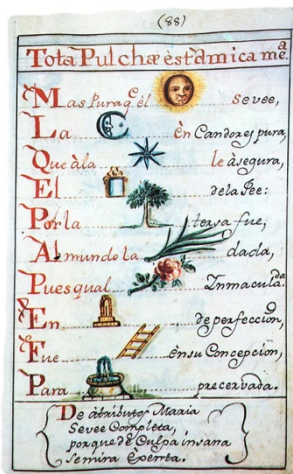 (88)
Tota Pulchræ èst àmica mea.
Mas Pura q.e èl Sevee,
La en Candores pura,
Que àla le àsegura,
El dela Fee:
Por la tersa fue,
Al mundo la dada,
Pues qual Inmaculada.
En de perfeccion,
Fue ensu Concepcion,
Para precervada.
De àtributos Maria
Sevee Completa,
porque de Culpa insana
se mira Exempta.